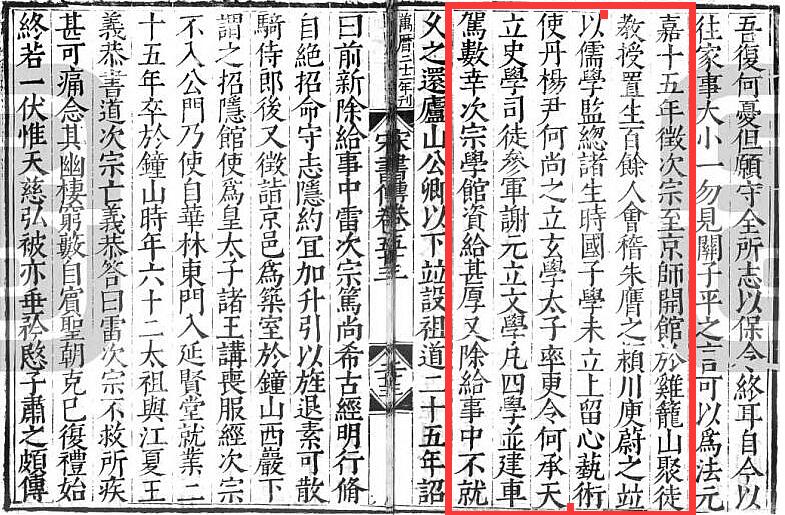 吾復何憂但願守全所志以保令終耳自今以
往家事大小一勿見關子平之言可以爲法元
嘉十五年徵次宗至京師開館於雞籠山聚徒
教授置生百餘人會稽朱膺之潁川庾蔚之竝
以儒學監總諸生時國子學未立上留心藝術
使丹楊尹何尚之立玄學太子率更令何承天
立史學司徒參軍謝元立文學凡四學並建車
駕數幸次宗學館資給甚厚又除給事中不就
久之還廬山公卿以下竝設祖道二十五年詔
萬曆二十二年刊
宋書傳卷五十三
曰前新除給事中雷次宗篤尚希古經明行脩
自絕招命守志隱約宜加升引以旌退素可散
騎侍郎後又徵詣京邑爲築室於鍾山西巖下
謂之招隱館使爲皇太子諸王講喪服經次宗
不入公門乃使自華林東門入延賢堂就業二
十五年卒於鍾山時年六十二太祖與江夏王
義恭書道次宗亡義恭答曰雷次宗不救所疾
甚可痛念其幽棲窮數自賓聖朝克己復禮始
終若一伏惟天慈弘被亦垂矜愍子肅之頗傳